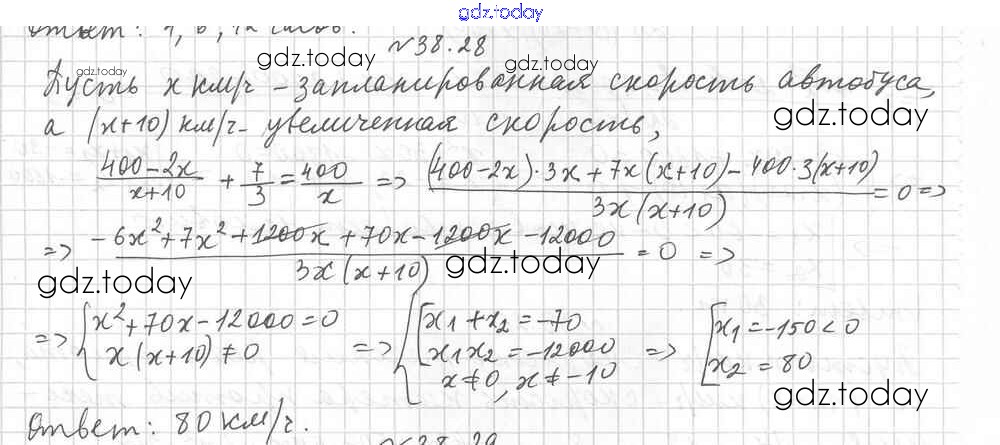 gdz.today
Ответ: 4, 6, 12 часов.
№38.28
gdz.today gdz.today gdz.today
Пусть x км/ч – запланированная скорость автобуса,
а (x+10) км/ч – увеличенная скорость,
gdz.today
(400-2x)/(x+10) + 7/3 = 400/x => ((400-2x)·3x + 7x(x+10) - 400·3(x+10))/(3x(x+10)) = 0 =>
=> (-6x² + 7x² + 1200x + 70x - 1200x - 12000)/(3x(x+10)) = 0 =>
gdz.today gdz.today
=> { x² + 70x - 12000 = 0 => { [ x₁ + x₂ = -70 => [ x₁ = -150 < 0
x(x+10) ≠ 0 x₁x₂ = -12000 x₂ = 80
x ≠ 0, x ≠ -10
gdz.today
Ответ: 80 км/ч.
№38.29